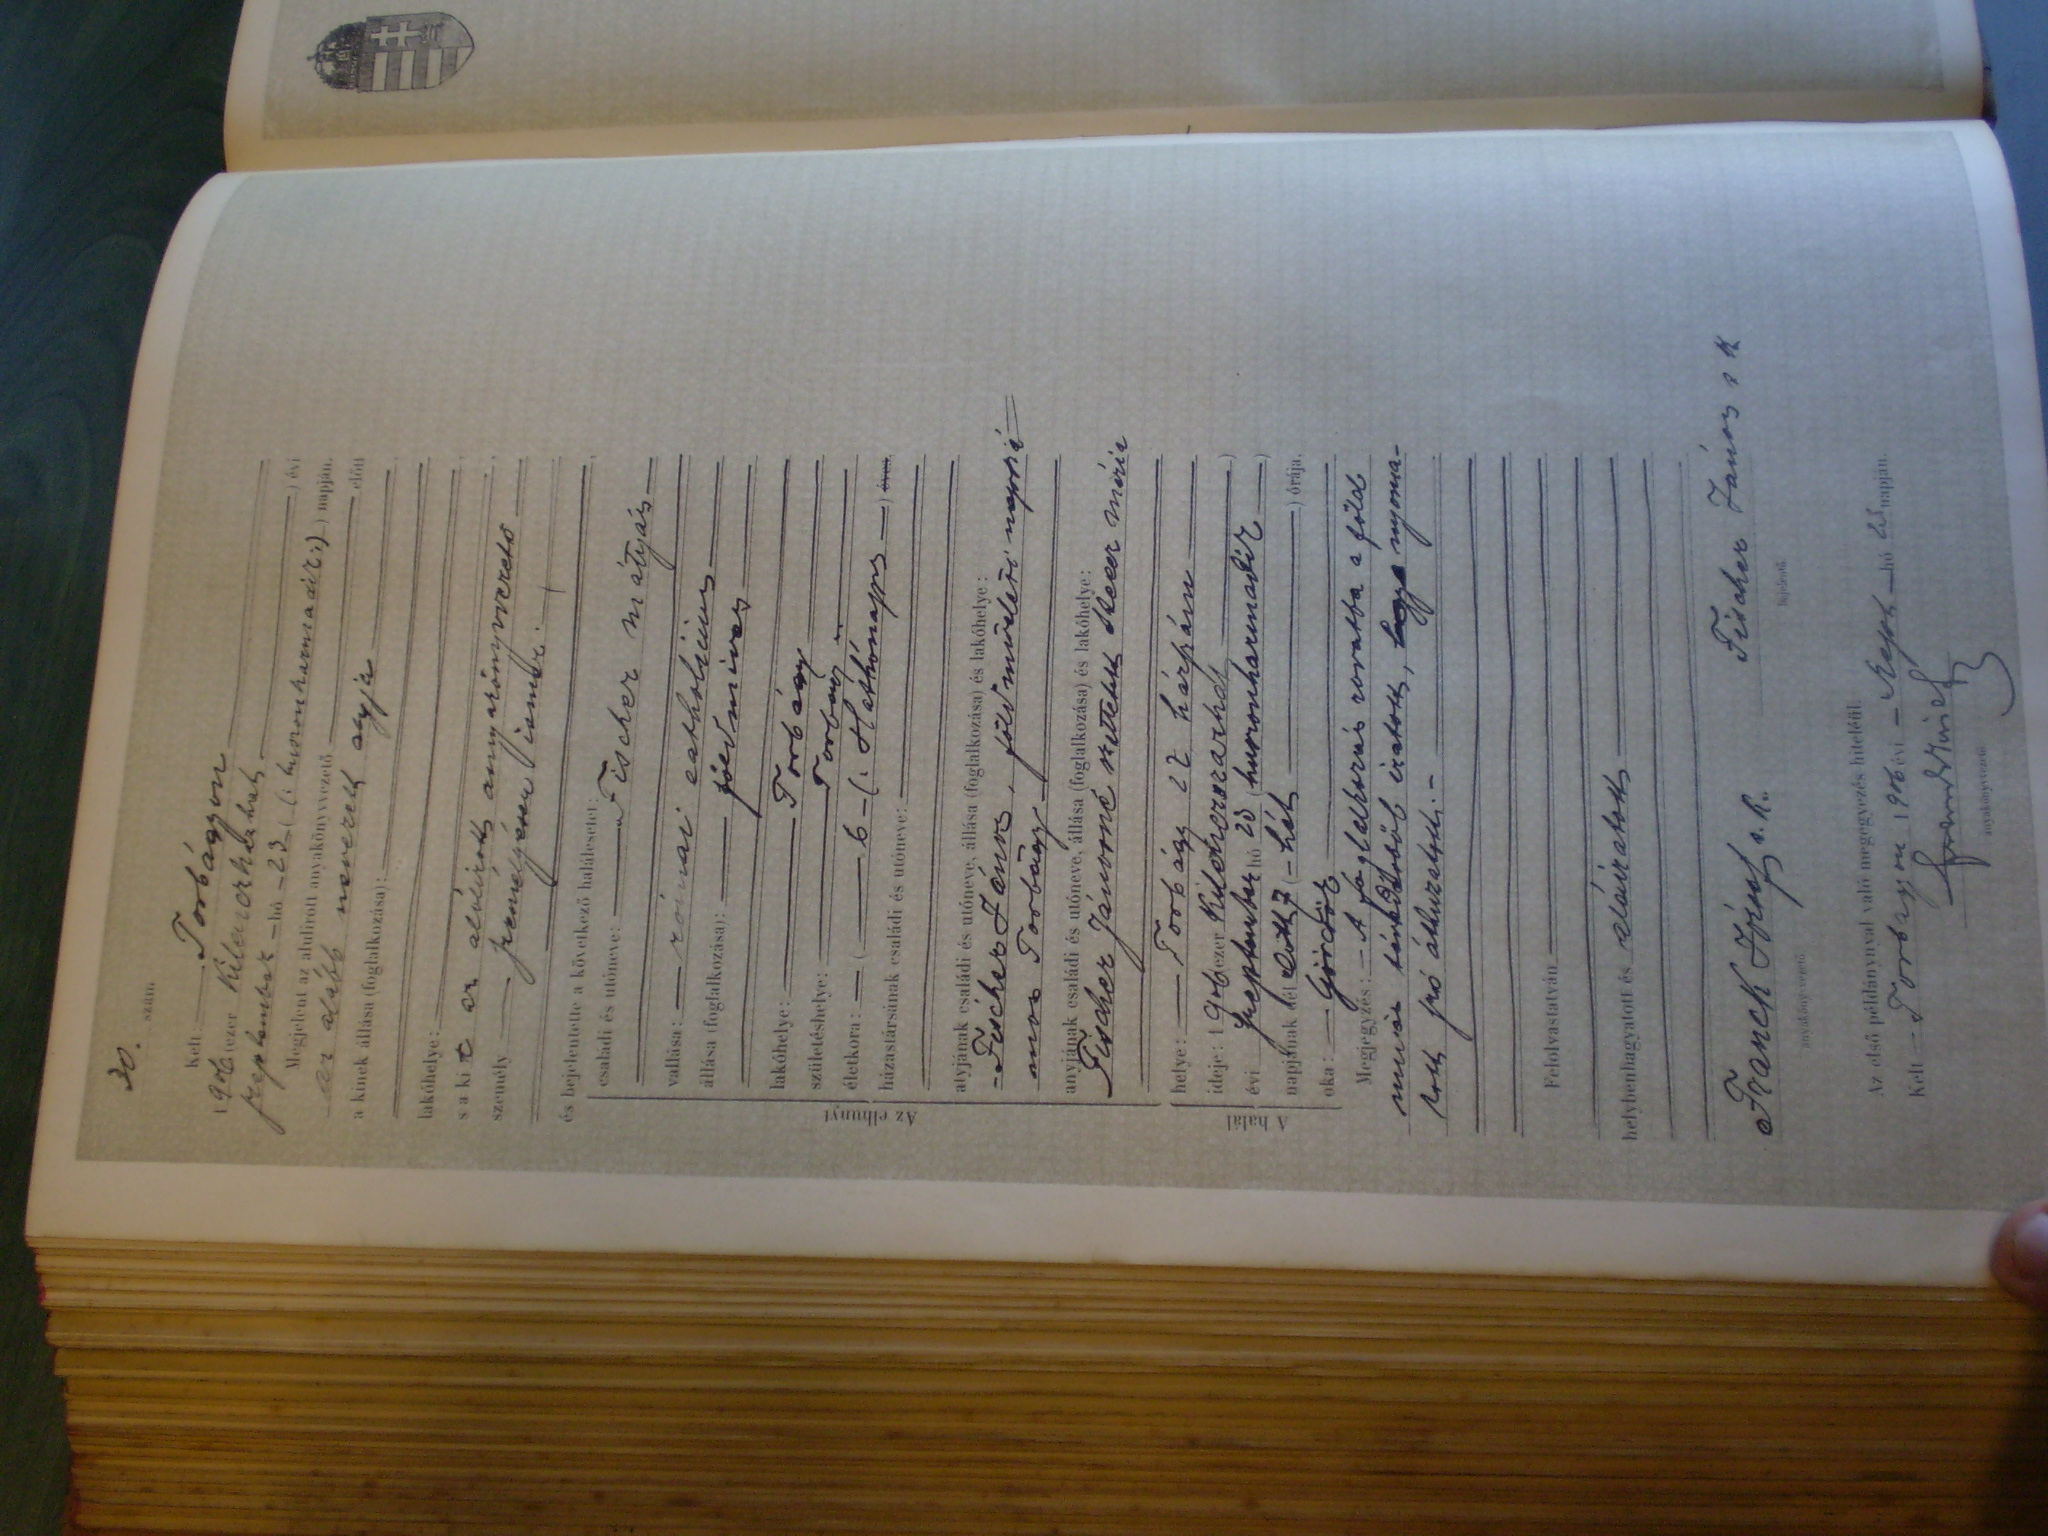 30. szám.
Kelt: Torbágyon
1906 (ezer kilenczszázhat) évi
szeptember hó 23 (huszonharmadik) napján.
Megjelent az alulirott anyakönyvvezető előtt
az alább nevezett atyja
a kinek állása (foglalkozása):
lakóhelye:
s a kit az alólirott anyakönyvvezető
személy személyesen ismer.
és bejelentette a következő halálesetet:
Az elhunyt
családi és utóneve: Fischer Mátyás
vallása: római catholicus
állása (foglalkozása): földmives
lakóhelye: Torbágy
születéshelye: Torbágy
életkora: 6 (Hat hónapos) éves
házastársának családi és utóneve:
atyjának családi és utóneve, állása (foglalkozása) és lakóhelye:
Fischer János, földmüvelési napszá-
mos Torbágy
anyjának családi és utóneve, állása (foglalkozása) és lakóhelye:
Fischer Jánosné született Mária
A halál
helye: Torbágy 27 házszám
ideje: 1906 (ezer kilenczszázhat)
évi szeptember hó 23 (huszonharmadik)
napjának dél előtt 7 (hét) órája.
oka: Görcsök
Megjegyzés: A foglalkozás rovatba a föld
nyoma-
tott szó áthuzatott.
Felolvastatván
helybenhagyatott és aláiratott
Franck József s.k.
anyakönyvvezető
Fischer János s k
bejelentő.
Az első példánynyal való megegyezés hiteléül.
Kelt Torbágyon 1906 évi Szept hó 23 napján.
anyakönyvvezető